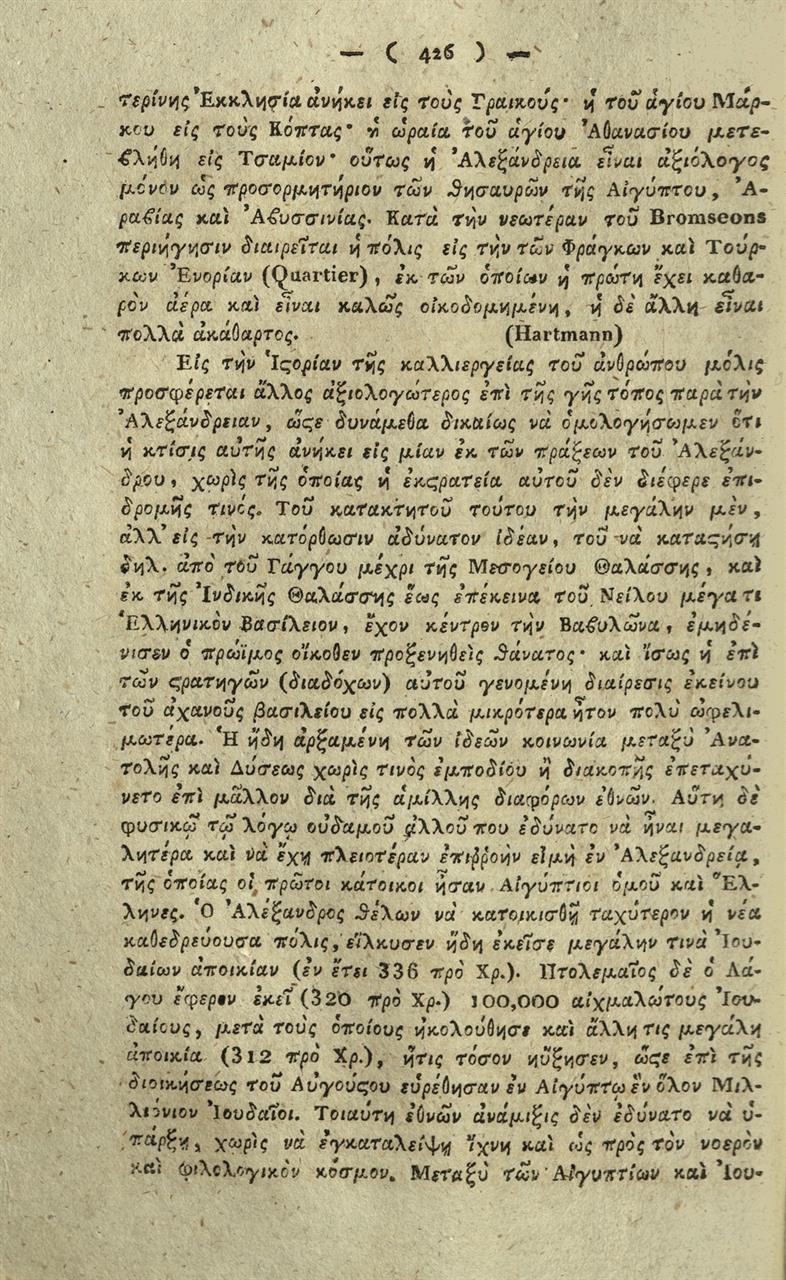 — ( 426 ) —
τερίνης Ἐκκλησία ἀνήκει εἰς τοὺς Γραικούς· ἡ τοῦ ἁγίου Μάρ-
κου εἰς τοὺς Κόπτας· ἡ ὡραία τοῦ ἁγίου Ἀθανασίου μετε-
βλήθη εἰς Τσαμίον· οὕτως ἡ Ἀλεξάνδρεια εἶναι ἀξιόλογος
μόνον ὡς προσορμητήριον τῶν θησαυρῶν τῆς Αἰγύπτου, Ἀ-
ραβίας καὶ Ἀβυσσινίας. Κατὰ τὴν νεωτέραν τοῦ Bromseons
περιήγησιν διαιρεῖται ἡ πόλις εἰς τὴν τῶν Φράγκων καὶ Τούρ-
κων Ἐνορίαν (Quartier), ἐκ τῶν ὁποίων ἡ πρώτη ἔχει καθα-
ρὸν ἀέρα καὶ εἶναι καλῶς οἰκοδομημένη, ἡ δὲ ἄλλη εἶναι
πολλὰ ἀκάθαρτος. (Hartmann)
Εἰς τὴν Ἱϛορίαν τῆς καλλιεργείας τοῦ ἀνθρώπου μόλις
προσφέρεται ἄλλος ἀξιολογώτερος ἐπὶ τῆς γῆς τόπος παρὰ τὴν
Ἀλεξάνδρειαν, ὥϛε δυνάμεθα δικαίως νὰ ὁμολογήσωμεν ὅτι
ἡ κτίσις αὐτῆς ἀνήκει εἰς μίαν ἐκ τῶν πράξεων τοῦ Ἀλεξάν-
δρου, χωρὶς τῆς ὁποίας ἡ ἐκϛρατεία αὐτοῦ δὲν διέφερε ἐπι-
δρομῆς τινός. Τοῦ κατακτητοῦ τούτου τὴν μεγάλην μὲν,
ἀλλ' εἰς τὴν κατόρθωσιν ἀδύνατον ἰδέαν, τοῦ νὰ καταϛήσῃ
δηλ. ἀπὸ τοῦ Γάγγου μέχρι τῆς Μεσογείου Θαλάσσης, καὶ
ἐκ τῆς Ἰνδικῆς Θαλάσσης ἕως ἐπέκεινα τοῦ Νείλου μέγα τι
Ἑλληνικὸν Βασίλειον, ἔχον κέντρον τὴν Βαβυλῶνα, ἐμηδέ-
νισεν ὁ πρώϊμος οἴκοθεν προξενηθεὶς θάνατος· καὶ ἴσως ἡ ἐπὶ
τῶν ϛρατηγῶν (διαδόχων) αὐτοῦ γενομένη διαίρεσις ἐκείνου
τοῦ ἀχανοῦς βασιλείου εἰς πολλὰ μικρότερα ἦτον πολὺ ὠφελι-
μωτέρα. Ἡ ἤδη ἀρξαμένη τῶν ἰδεῶν κοινωνία μεταξὺ Ἀνα-
τολῆς καὶ Δύσεως χωρὶς τινὸς ἐμποδίου ἢ διακοπῆς ἐπεταχύ-
νετο ἐπὶ μᾶλλον διὰ τῆς ἁμίλλης διαφόρων ἐθνῶν. Αὕτη δὲ
φυσικῷ τῷ λόγῳ οὐδαμοῦ ἄλλου που ἐδύνατο νὰ ἦναι μεγα-
λητέρα καὶ νὰ ἔχῃ πλειοτέραν ἐπιῤῥοὴν εἰμὴ ἐν Ἀλεξανδρείᾳ,
τῆς ὁποίας οἱ πρῶτοι κάτοικοι ἦσαν Αἰγύπτιοι ὁμοῦ καὶ Ἕλ-
ληνες. Ὁ Ἀλέξανδρος θέλων νὰ κατοικισθῇ ταχύτερον ἡ νέα
καθεδρεύουσα πόλις, εἵλκυσεν ἤδη ἐκεῖσε μεγάλην τινὰ Ἰου-
δαίων ἀποικίαν (ἐν ἔτει 336 πρὸ Χρ.). Πτολεμαῖος δὲ ὁ Λά-
γου ἔφερεν ἐκεῖ (320 πρὸ Χρ.) 100,000 αἰχμαλώτους Ἰου-
δαίους, μετὰ τοὺς ὁποίους ἠκολούθησε καὶ ἄλλη τις μεγάλη
ἀποικία (312 πρὸ Χρ.), ἥτις τόσον ηὔξησεν, ὥϛε ἐπὶ τῆς
διοικήσεως τοῦ Αὐγούϛου εὑρέθησαν ἐν Αἰγύπτῳ ἓν ὅλον Μιλ-
λιόνιον Ἰουδαῖοι. Τοιαύτη ἐθνῶν ἀνάμιξις δὲν ἐδύνατο νὰ ὑ-
πάρξῃ, χωρὶς νὰ ἐγκαταλείψῃ ἴχνη καὶ ὡς πρὸς τὸν νοερὸν
καὶ φιλολογικὸν κόσμον. Μεταξὺ τῶν Αἰγυπτίων καὶ Ἰου-